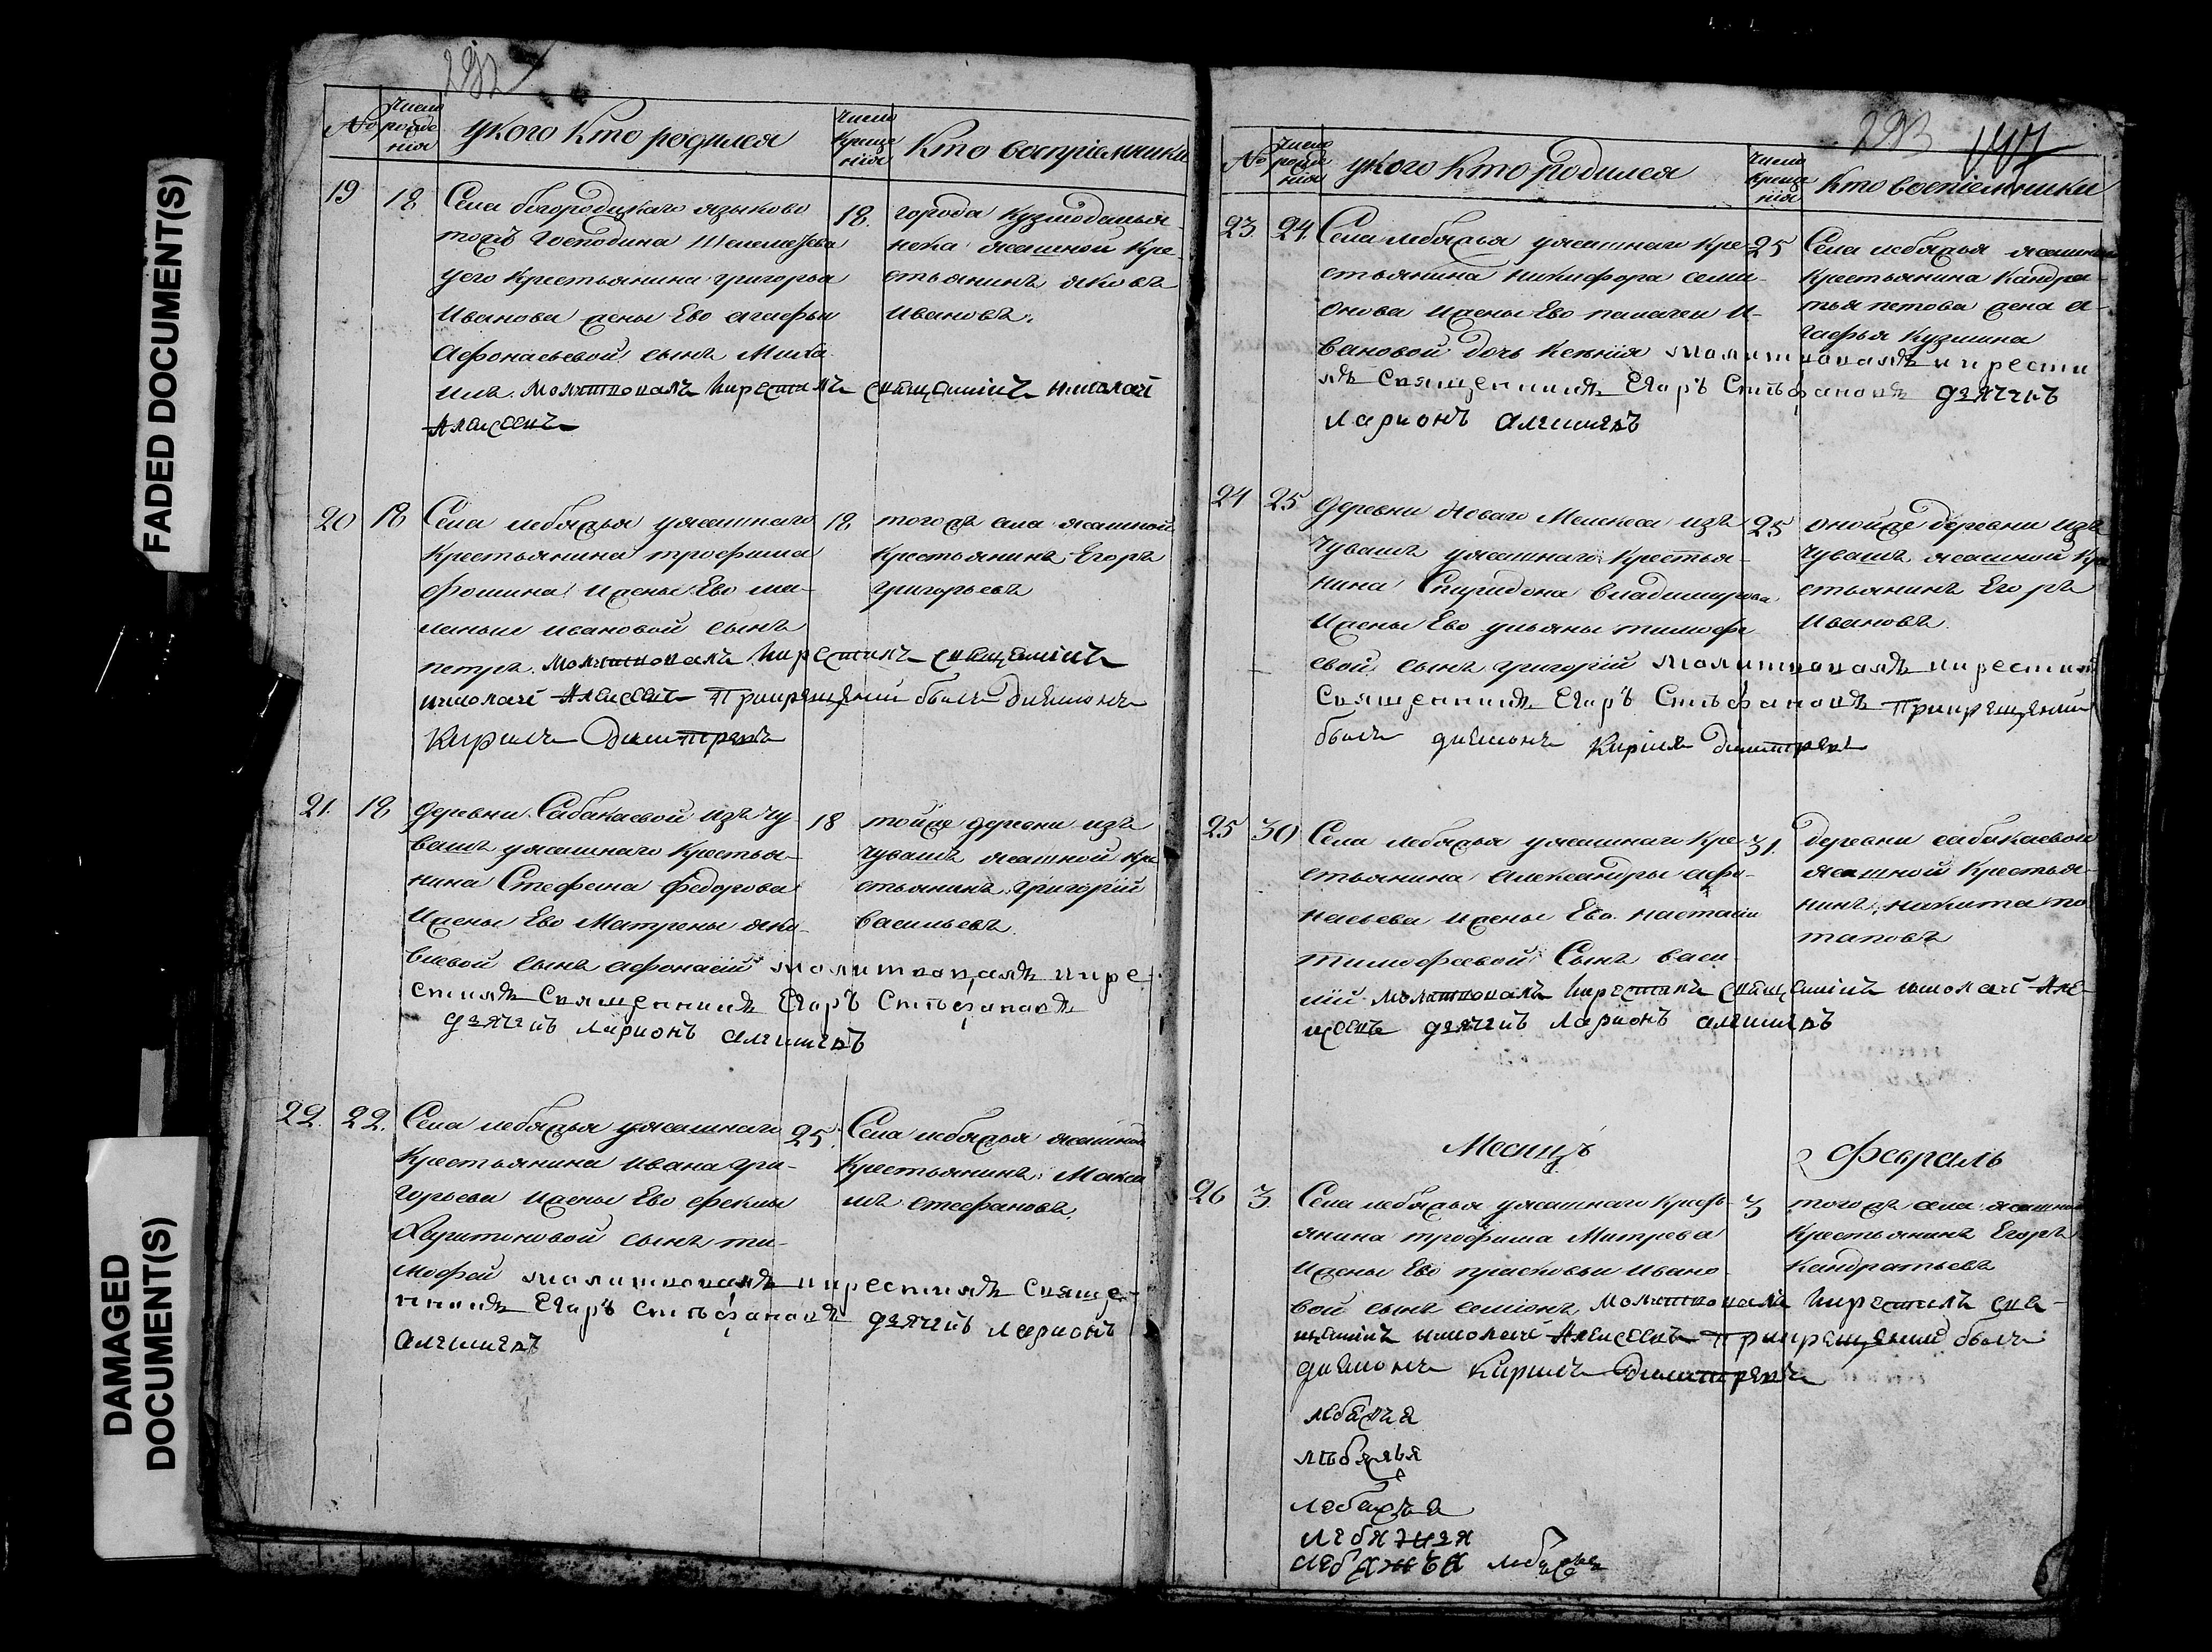 FADED DOCUMENT(S)
DAMAGED
DOCUMENT(S)
292
№
число рождения
укого Кто родился
число крещения
Кто восприемники
19 18. Села богородицкаго языково
тожъ Господина
уего Крестьянина григорья
Иванова жены Ево агафьи
Афонасьевой сынъ Миха
илъ. молитвовалъ икрестилъ священникъ николай
Алексеевъ
18. города Кузмодемья
нска ясашной Кре-
стьянинъ яковъ
Ивановъ.
20 18 Села лебяжья уясашнаго
Крестьянина трофима
фомина Ижены Ево ма-
ланьи ивановой сынъ
петръ. молитвовалъ икрестилъ священникъ
николай Алексеевъ Прикрещении былъ диаконъ
Кирилъ Димитревъ
18. тогожъ села ясашной
Крестьянинъ Егоръ
григорьевъ
21. 18 деревни Сабакаевой изъ чу
вашъ уясашнаго Крестья-
нина Стефана федорова
Ижены Ево Матрены яко-
влевой сынъ афонасий молитвовалъ икре-
стилъ Священникъ Егоръ Стефановъ
дьячекъ Ларионъ
18 тойже деревни изъ
чувашъ ясашной кре
стьянинъ григорий
васильевъ.
22. 22. Села лебяжья уясашнаго
Крестьянина Ивана гри-
горьева Ижены Ево феклы
Харитоновой сынъ ти-
мофей молитвовалъ икрестилъ Свяще-
нникъ Егоръ Стефановъ дьячекъ Ларионъ
25. Села лебяжья ясашной
Крестьянинъ Макси
мъ стефановъ.
293
№
число рождения
укого Кто родился
число крещения
Кто восприемники
23. 24. Села лебяжья уясашнаго Кре-
стьянина никифора семи-
онова Ижены Ево пелагеи И-
вановой дочь Ксения молитвовалъ икрести
лъ Священникъ Егоръ Стефановъ дьячекъ
Ларионъ
25 Села лебяжья ясашнаго
Крестьянина Кандра-
тья петова жена а-
гафья Кузмина
24 25 деревни Новаго Мелекеса изъ
Чувашъ уясашнаго Крестья-
нина Спиридона владимирова
Ижены Ево ульяны тимофе
евой сынъ григорий молитвовалъ икрестил
Священникъ Егоръ Стефановъ Прикрещении
былъ диаконъ Кирилъ димитревъ
25 онойже деревни изъ
чувашъ ясашной Кре
стьянинъ Егоръ
Ивановъ.
25 30 Села лебяжья уясашнаго Кре-
стьянина александры афо-
насьева Ижены Ево настасьи
тимофеевой Сынъ васи-
лий молитвовалъ икрестилъ священникъ николай Але-
ксеевъ дьячекъ Ларионъ
31. деревни сабакаевой
ясашной Крестья-
нинъ никита по
таповъ
Месяцъ февраль
26 3. Села лебяжья уясашнаго Кресть-
янина трофима Митрева
Ижены Ево прасковьи Ивано-
вой сынъ семионъ. молитвовалъ икрестилъ свя-
щенникъ николай Алексеевъ Прикрещении былъ
диаконъ Кирилъ Димитревъ
3 тогожъ села ясашной
Крестьянинъ Егоръ
Кандратьевъ